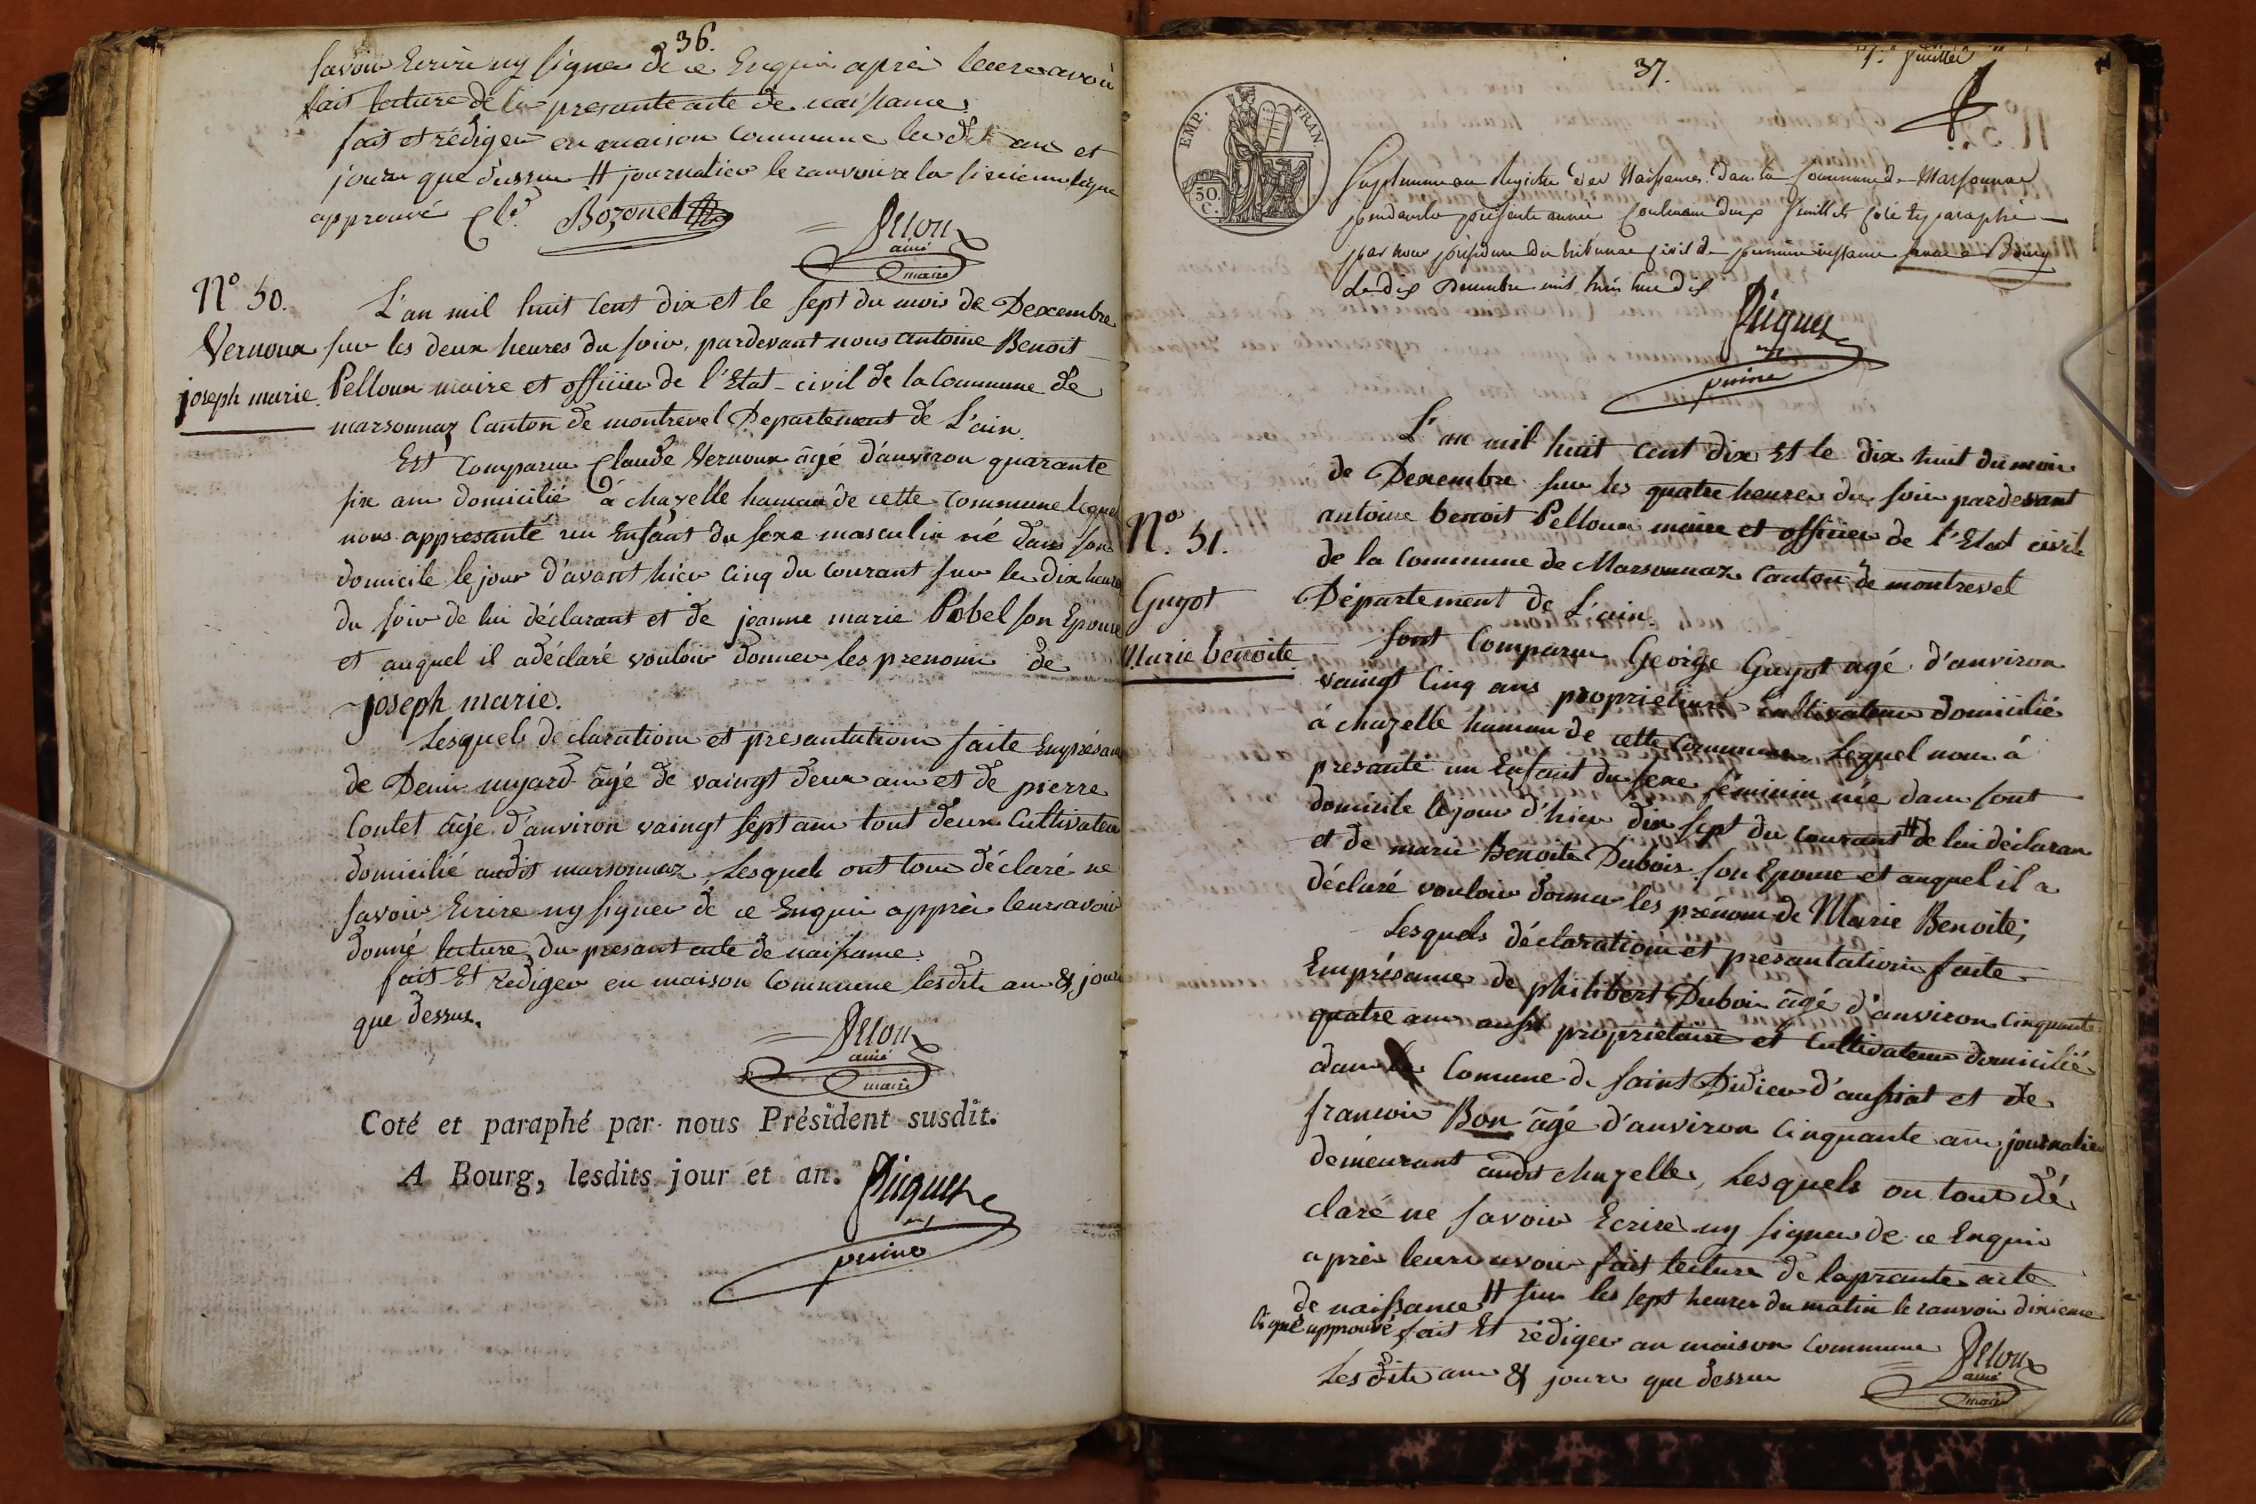 36.
savoir Ecrire ny signer de ce Enquis aprèi leure avoir
fait lecture de la presante acte de naissance
fait et rédiger en maison Commune les dt an et
jour que dussus # journalier le ranvoi a la sixieme ligne
approuvé Cle. Bozonet Pelou
ainé
maire
No 50.
Vernoux
joseph marie.
L'an mil huit Cent dix et le sept du mois de Dexembre
sur les deux heures du soir, pardevant nous antoine Benoit
Pelloux maire et officier de l'Etat-civil de la Commune de
marsonnaz Canton de montrevel Departement de L'ain.
Est Comparu Claude Vernoux âgé d'anviron quarante
six ans domicilié à chazelle hamau de cette Commune lequel
nous appresanté un Enfant du sexe masculin né dans son
domicile le jour d'avant hier cinq du courant sur les dix heures
du soir de lui déclarant et de jeanne marie Pobel son Epouse
et auquel il adéclaré vouloir donner les prenoms de
joseph marie.
Lesquels déclarations et presantations faite Enprésance
de Denis nyard âgé de vaingt deux ans et de pierre
Contet âgé d'anviron vaingt sept ans tout deux Cultivateur
domicilié audit marsonnaz, Lesquels ont tous déclaré ne
savoir Ecrire ny signer de ce Enquis apprèi leurs avoir
donné lecture du presant acte de naissance.
fait Et rediger en maison Commune lesdits an & jour
que dessus.
Pelou
ainé
maire
Coté et paraphé par nous Président susdit.
A Bourg, lesdits jour et an.
Piquet
prime
37.
1er feuillet
EMP. FRAN
50 C.
Supplement au Registre des Naissances dans la Commune de Marsonnas
pendant la présente année Contenant deux feuillets Coté et paraphé
par nous président du tribunal civil de première instance séant a Bourg
le dix Decembre mil huit cent dix
Piquet
prime
No. 51.
Guyot
Marie benoite
L'an mil huit cent dix Et le dix huit du mois
de Dexembre sur les quatre heures du soir pardevant
antoine benoit Pelloux maire et officier de l'Etat civil
de la Commune de Marsonnaz Canton de montrevel
Département de L'ain.
Sont Comparu George Guyot agé d'anviron
vaingt Cinq ans proprietaire Cultivateur domicilié
á chazelle hamau de cette Commune Lequel nous á
presanté un Enfant du sexe féminin née dans sont
domicile le jour d'hier dix sept du courant # de lui déclaran
et de marie Benoite Dubois son Epouse et auquel il a
déclaré vouloir donner les prénoms de Marie Benoite;
Lesquels déclarations et presantations faite
Emprésance de philibert Dubois âgé d'anviron cinquante
quatre ans aussi proprietaire et Cultivateur domicilié
dans la Comune de saint Didier d'aussiat et de
francois Bon âgé d'anviron Cinquante ans, journalier
demeurant audit chazelle, Lesquels on tout dé
claré ne savoir Ecrire ny signer de ce Enquis
aprèi leurs avoir fait lecture de laprante acte
de naissance # sur les sept heures du matin le ranvoi dixieme
ligne approuvé, fait Et rédiger an maison Commune
Les dits ans & jours que dessus
Pelou
ainé
maire